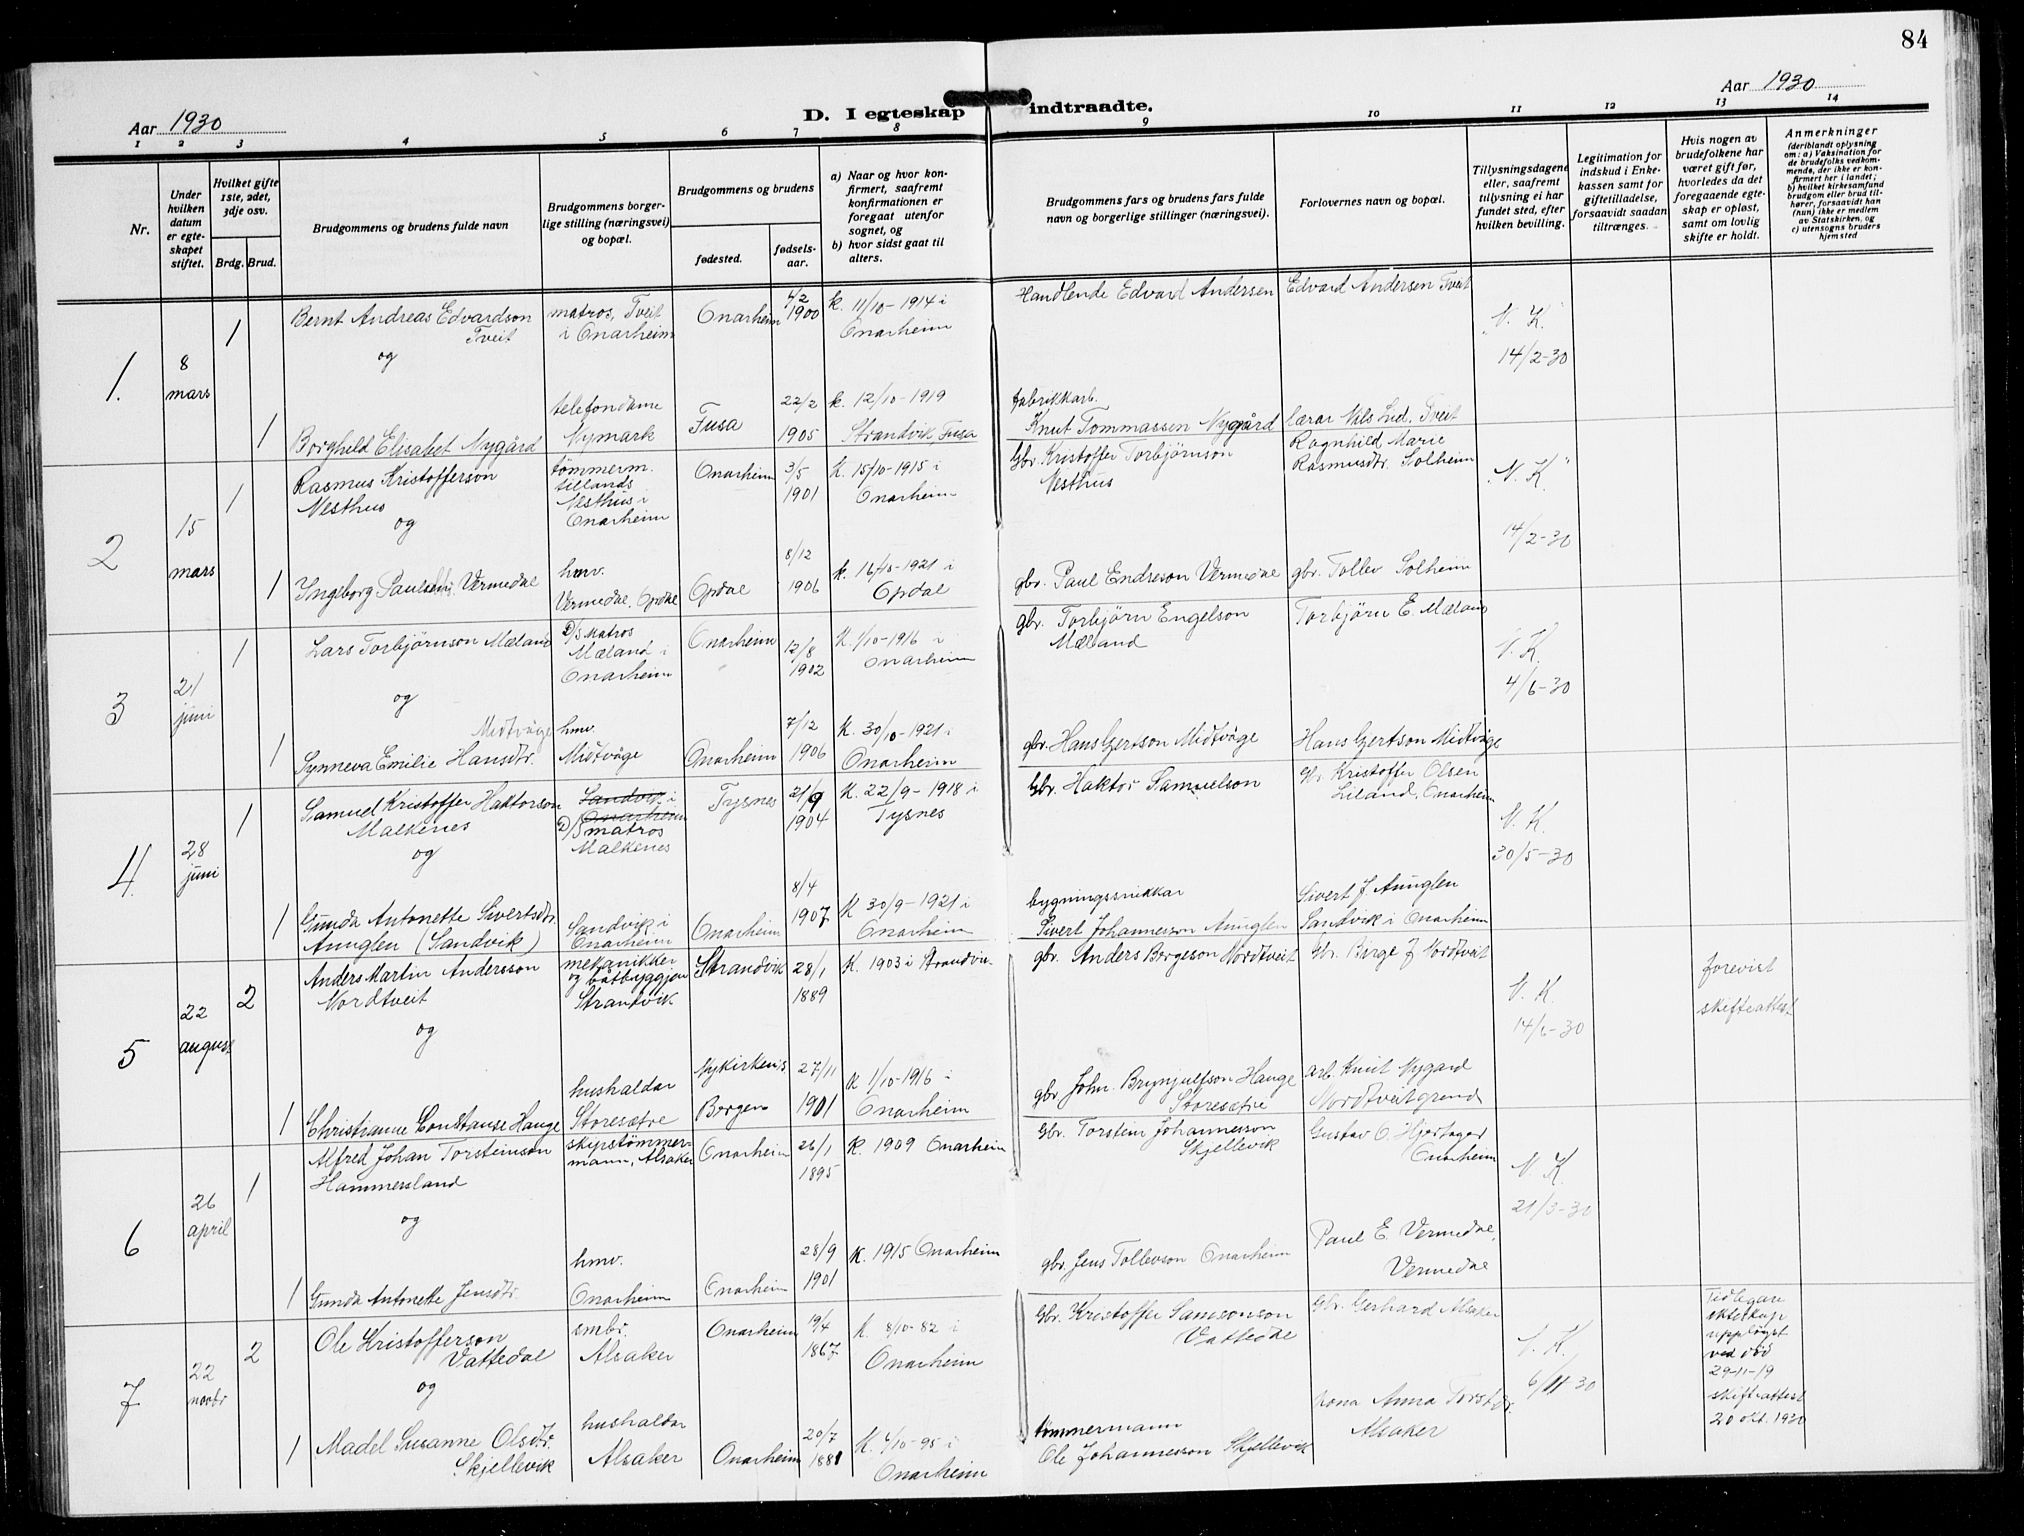 84
Aar 1930
D. I egteskap indtraadte.
Aar 1930
1 2 3 4 5 6 7 8 9 10 11 12 13 14
Nr.
Under
hvilken
datum
er egte-
skapet
stiftet.
Hvilket gifte
1ste, 2det,
3dje osv.
Brdg. Brud.
Brudgommens og brudens fulde navn
Brudgommens borger-
lige stilling (næringsvei)
og bopæl.
Brudgommens og brudens
fødested.
fødsels-
aar.
a) Naar og hvor kon-
firmert, saafremt
konfirmationen er
foregaat utenfor
sognet, og
b) hvor sidst gaat til
alters.
Brudgommens fars og brudens fars fulde
navn og borgerlige stillinger (næringsvei).
Forlovernes navn og bopæl.
Tillysningsdagene
eller, saafremt
tillysning ei har
fundet sted, efter
hvilken bevilling.
Legitimation for
indskud i Enke-
kassen samt for
giftetilladelse,
forsaavidt saadan
tiltrænges.
Hvis nogen av
brudefolkene har
været gift før,
hvorledes da det
foregaaende egte-
skap er opløst,
samt om lovlig
skifte er holdt.
Anmerkninger
(deriblandt oplysning
om: a) Vaksination for
de brudefolks vedkom-
mende, der ikke er kon-
firmert her i landet;
b) hvilket kirkesamfund
brudgom eller brud til-
hører, forsaavidt han
(hun) ikke er medlem
av Statskirken, og
c) utensogns bruders
hjemsted
1.
8
mars
1
Bernt Andreas Edvardson
Tveit
og
matros, Tveit
i Onarheim
Onarheim
4/2
1900
k. 11/10-1914 i
Onarheim
Handlende Edvard Andersen
Edvard Andersen Tveit
V. K.
14/2-30
1
Borghild Elisabet Nygård
telefondame
Nymark
Fusa
22/2
1905
k. 12/10-1919
Strandvik Fusa
fabrikkarb.
Knut Tommassen Nygård
lærar Nils Lud. Tveit
2
15
mars
1
Rasmus Kristofferson
Nesthus
og
tømmerm.
tillands
Nesthus i
Onarheim
Onarheim
3/5
1901
K. 15/10-1915 i
Onarheim
Gbr. Kristoffer Torbjørnson
Nesthus
Ragnhild Marie
Rasmusdtr. Solheim
V. K.
14/2-30
1
Ingborg Paulsdtr. Vermedal
hmv.
Vermedal, Opdal
Opdal
8/12
1906
k. 16/10-1921 i
Opdal
gbr. Paul Endreson Vermedal
gbr. Tollev Solheim
3
21
juni
1
Lars Torbjørnson Mæland
og
D/S Matros
Mæland i
Onarheim
Onarheim
12/8
1902
K. 1/10-1916 i
Onarheim
gbr. Torbjørn Engelson
Mæland
Torbjørn E. Mæland
V. K.
4/6-30
1
Midtvåge
Synneva Emilie Hansdtr.
hmv.
Midtvåge
Onarheim
7/12
1906
K. 30/10-1921 i
Onarheim
gbr. Hans Gjertson Midtvåge
Hans Gjertson Midtvåge
4.
28
juni
1
Samuel Kristoffer Haktorson
Malkenes
og
Sandvik i
Onarheim
D/S matros
Malkenes
Tysnes
21/9
1904
K. 22/9-1918 i
Tysnes
Gbr. Haktor Samuelson
Gbr Kristoffer Olsen
Liland, Onarheim
V. K.
30/5-30
1
Gunda Antonette Sivertsdtr.
Aunglen (Sandvik)
Sandvik i
Onarheim
Onarheim
8/4
1907
K 30/9-1921 i
Onarheim
bygningssnikkar
Sivert Johannesson Aunglen
Sivert J. Aunglen
Sandvik i Onarheim
5
22
august
2
Anders Martin Andersson
Nordtveit
og
mekanikker
og båtbyggjar
Strandvik
Strandvik
28/1
1889
K. 1903 i Strandvik
gbr. Anders Børgeson Nordtveit
Gbr. Børge J Nordtveit
V. K.
14/6-30
forevist
skifteattest
1
Christianne Constanse Hauge
hushaldar
Storesætre
Nykirkens
Bergen
27/11
1901
K 1/10-1916 i
Onarheim
gbr. John Brynjulfson Hauge
Storesætre
arb. Knut Nygard
Nordtveitgrend
6
26
april
1
Alfred Johan Torsteinson
Hammersland
og
skipstømmer-
mann, Alsaker
Onarheim
26/1
1895
k. 1909 Onarheim
Gbr. Torstein Johannesson
Skjellevik
Gustav O. Hjertager
Onarheim
V. K
21/3-30
1
Gunda Antonette Jensdtr.
hmv.
Onarheim
Onarheim
28/9
1901
K. 1915 Onarheim
gbr. Jens Tollevson Onarheim
Paul E. Vermedal,
Vermedal
7
22
novbr
2
Ole Kristofferson
Vattedal
og
smbr.
Alsaker
Onarheim
19/4
1867
K. 8/10-82 i
Onarheim
Gbr. Kristoffer Samsonson
Vattedal
Gbr. Gerhard Alsaker
V. K.
6/11 30
Tidlegare
ekteskap
uppløyst
ved død
29-11-19
skifteattest
20 okt. 1930
1
Madel Susanne Olsdtr.
Skjellevik
hushaldar
Alsaker
Onarheim
20/7
1881
K. 4/10-95 i
Onarheim
tømmermann
Ole Johannesson Skjellevik
kona Anna Torstdr.
Alsaker